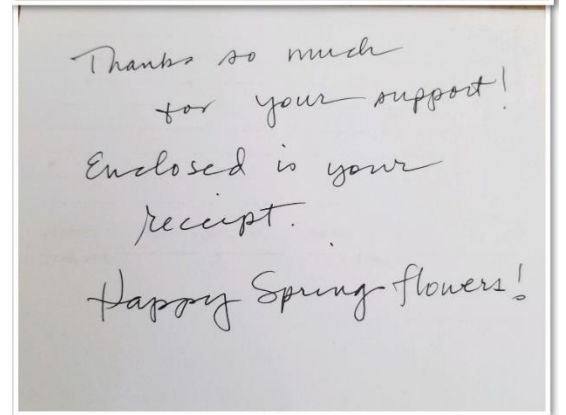 Thanks so much
for your support!
Enclosed is your
receipt.
Happy Spring flowers!